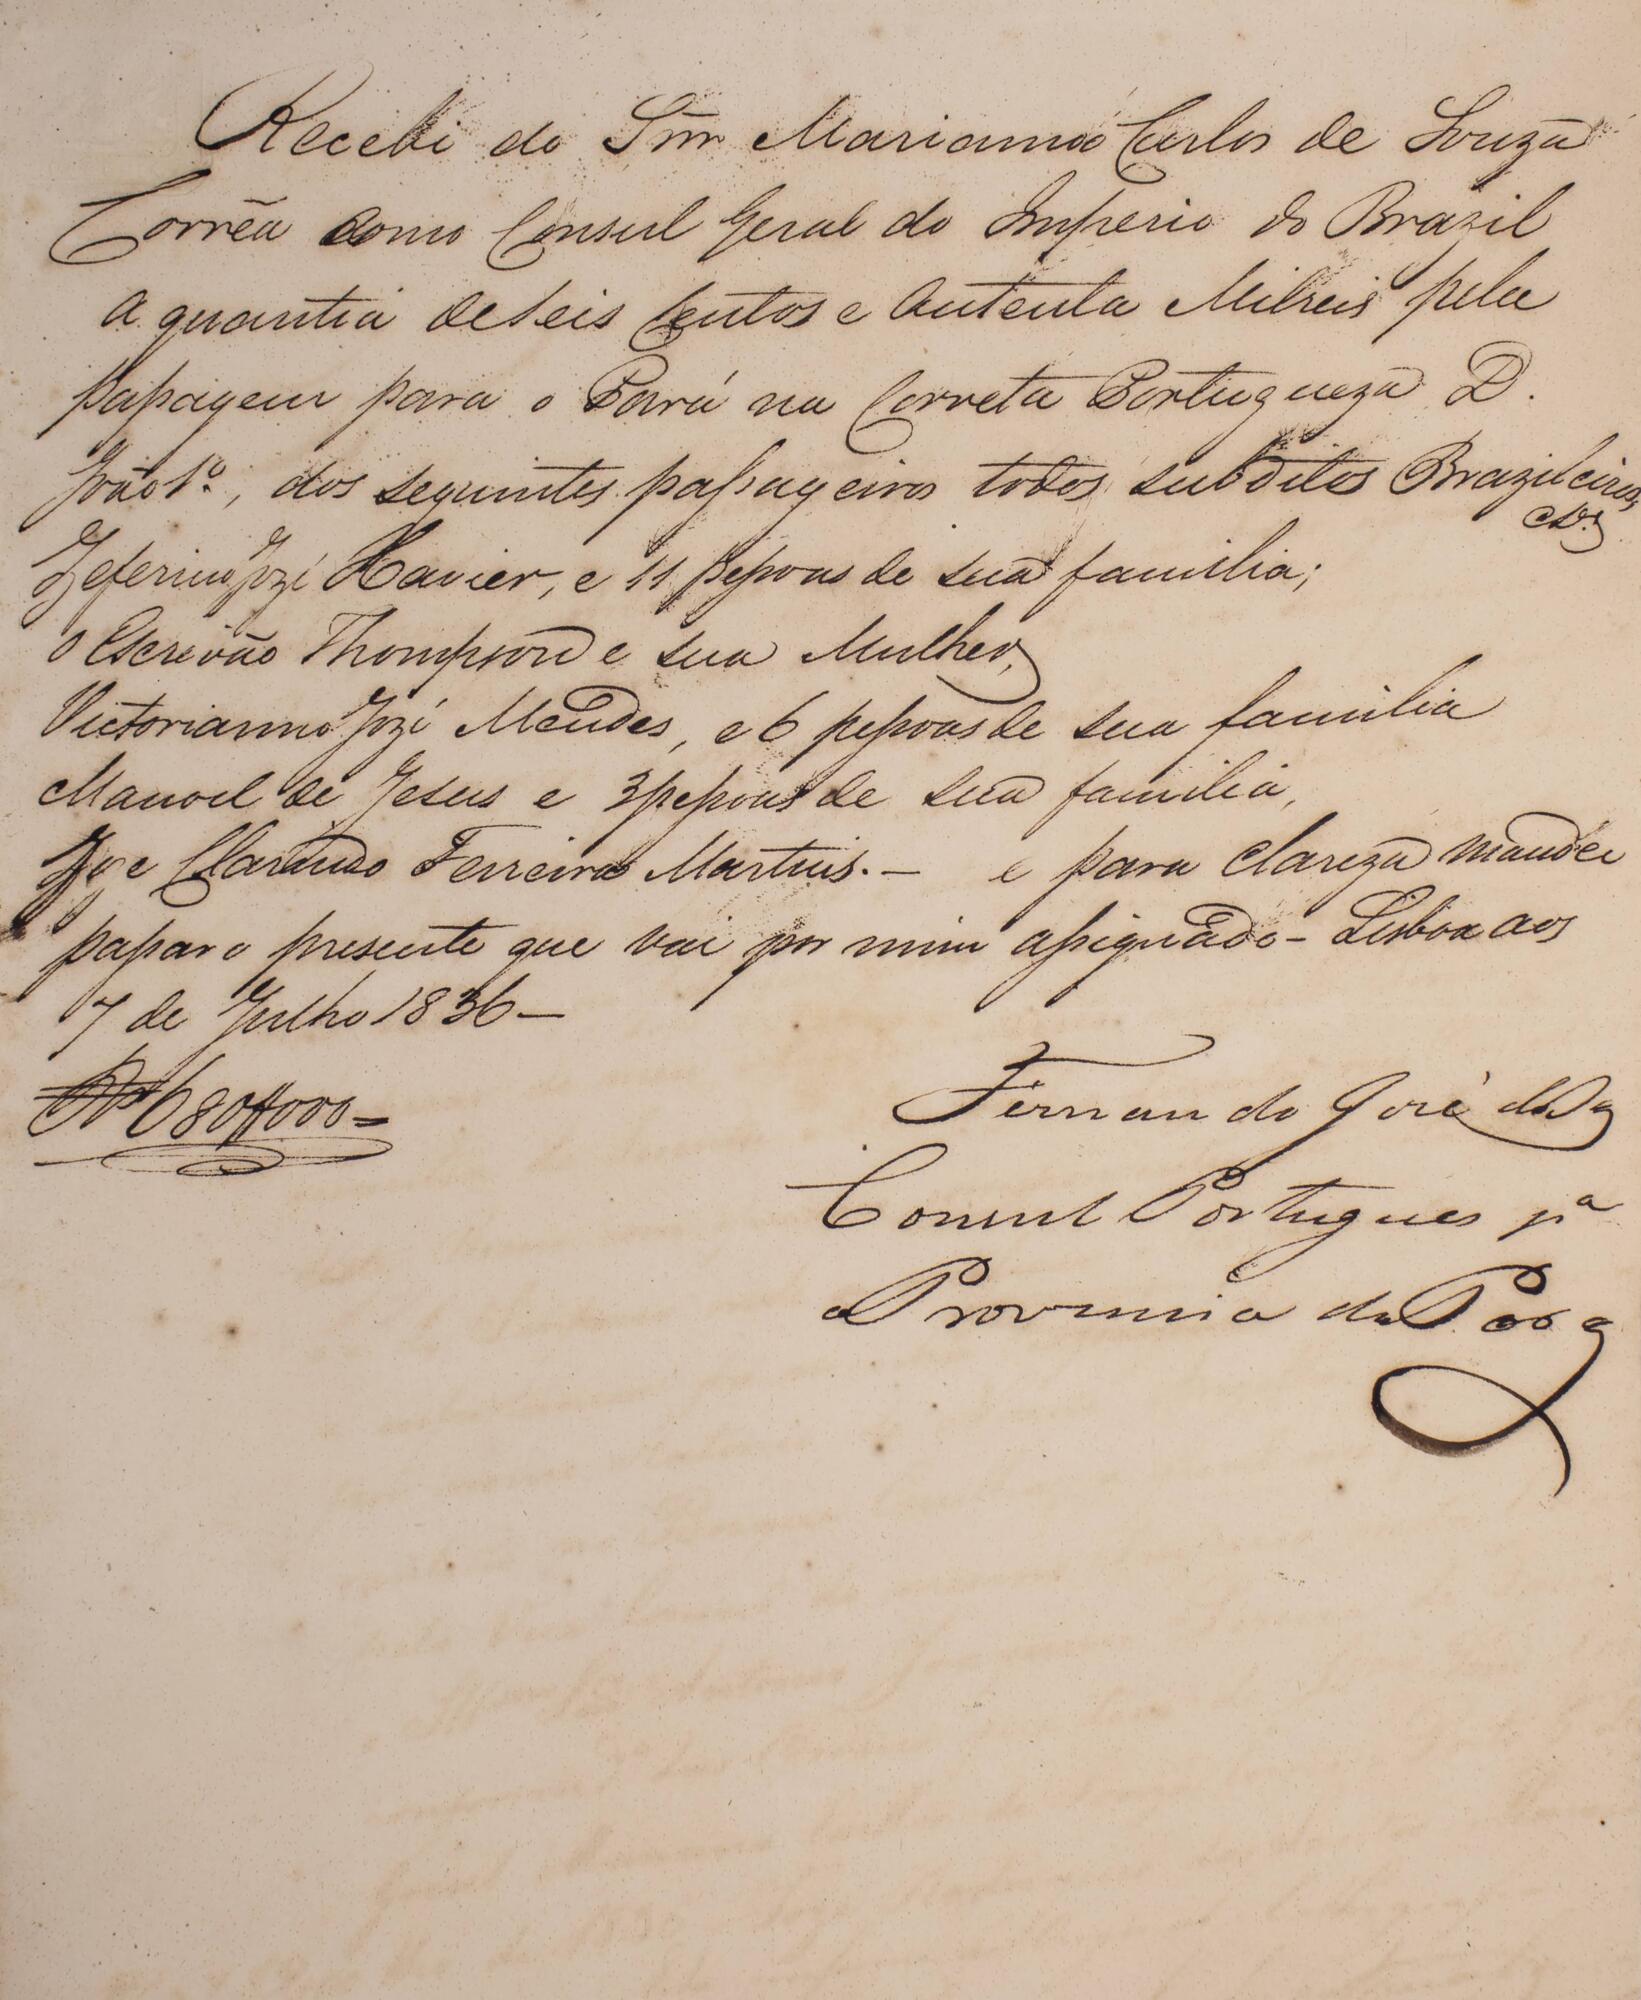 Recebi do Snr Marianno Carlos de Souza
Corrêa como Consul Geral do Imperio do Brazil
a quantia de seis Centos e outenta Milreis pela
passagem para o Pará na Correta Portugueza D.
João 1º., dos seguintes passageiros todos subditos Brazileiros,
Zeferino Jozé Xavier, e 11 pessoas de sua familia;
o Escrivão Thompson e sua Mulher,
Victorianno Jozé Mendes, e 6 pessoas de sua familia
Manoel de Jesus e 3 pessoas de sua familia,
Ferreira Martins. — e para clareza mandei
passar o presente que vai por mim assignado – Lisboa aos
7 de Julho 1836 —
Rs 680#000 =
Fernando José da
Consul Portugues pa
a Provincia do Pará